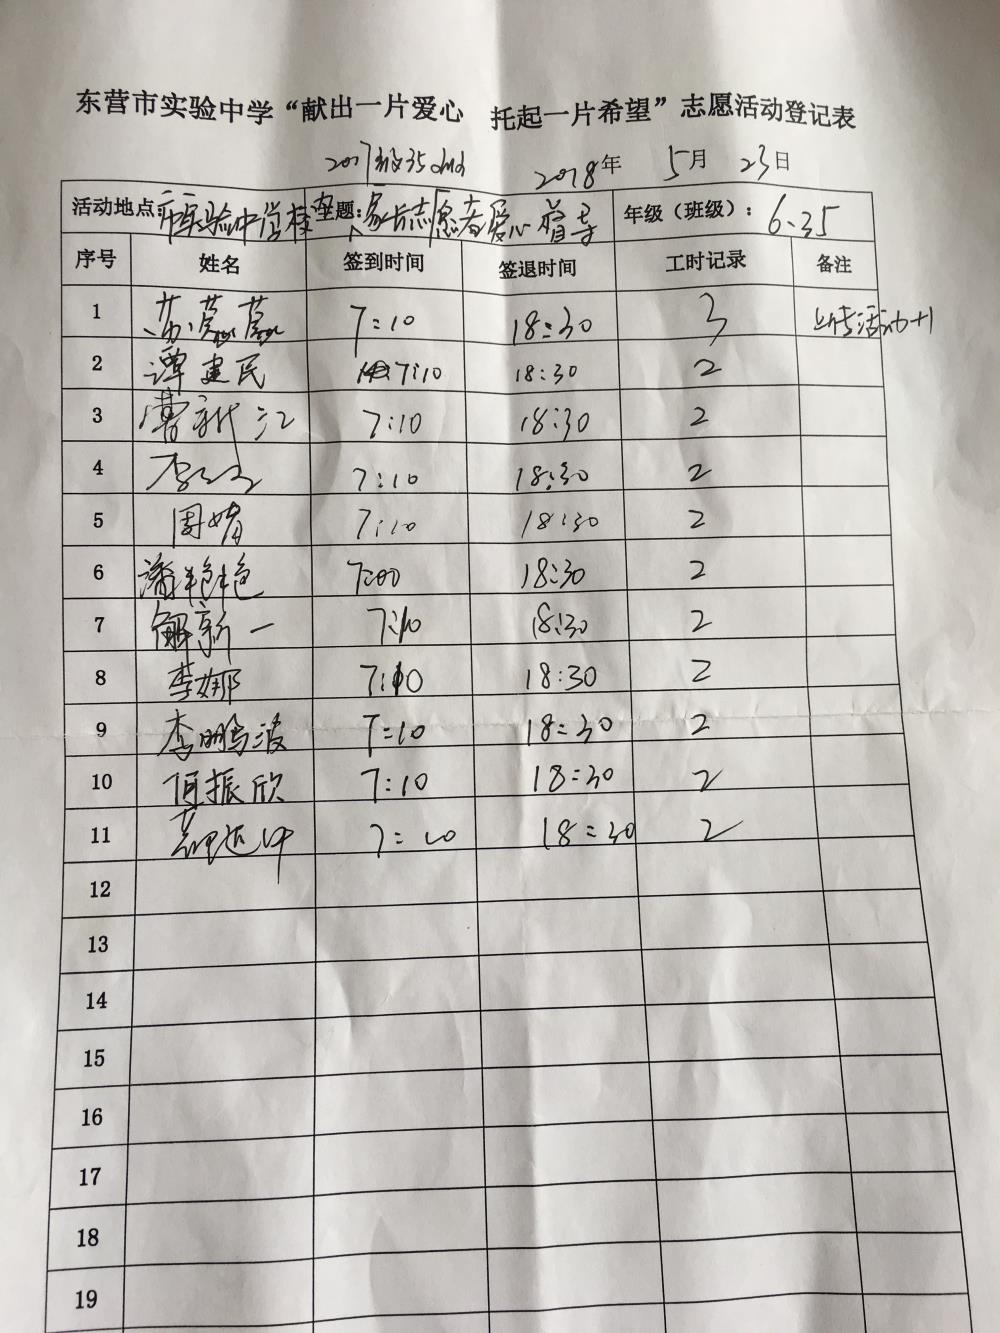 东营市实验中学“献出一片爱心 托起一片希望”志愿活动登记表
2017级35 2018年 5月 23日
活动地点：市实验中学校内 主题：家长志愿者爱心督导 年级（班级）：6.35
序号 姓名 签到时间 签退时间 工时记录 备注
1 苏蕊蕊 7:10 18:30 3 上传活动+1
2 谭建民 7:10 18:30 2
3 曹新江 7:10 18:30 2
4 7:10 18:30 2
5 周婧 7:10 18:30 2
6 潘艳艳 7:00 18:30 2
7 解新一 7:10 18:30 2
8 李娜 7:10 18:30 2
9 李鹏波 7:10 18:30 2
10 振欣 7:10 18:30 2
11 7:10 18:30 2
12
13
14
15
16
17
18
19